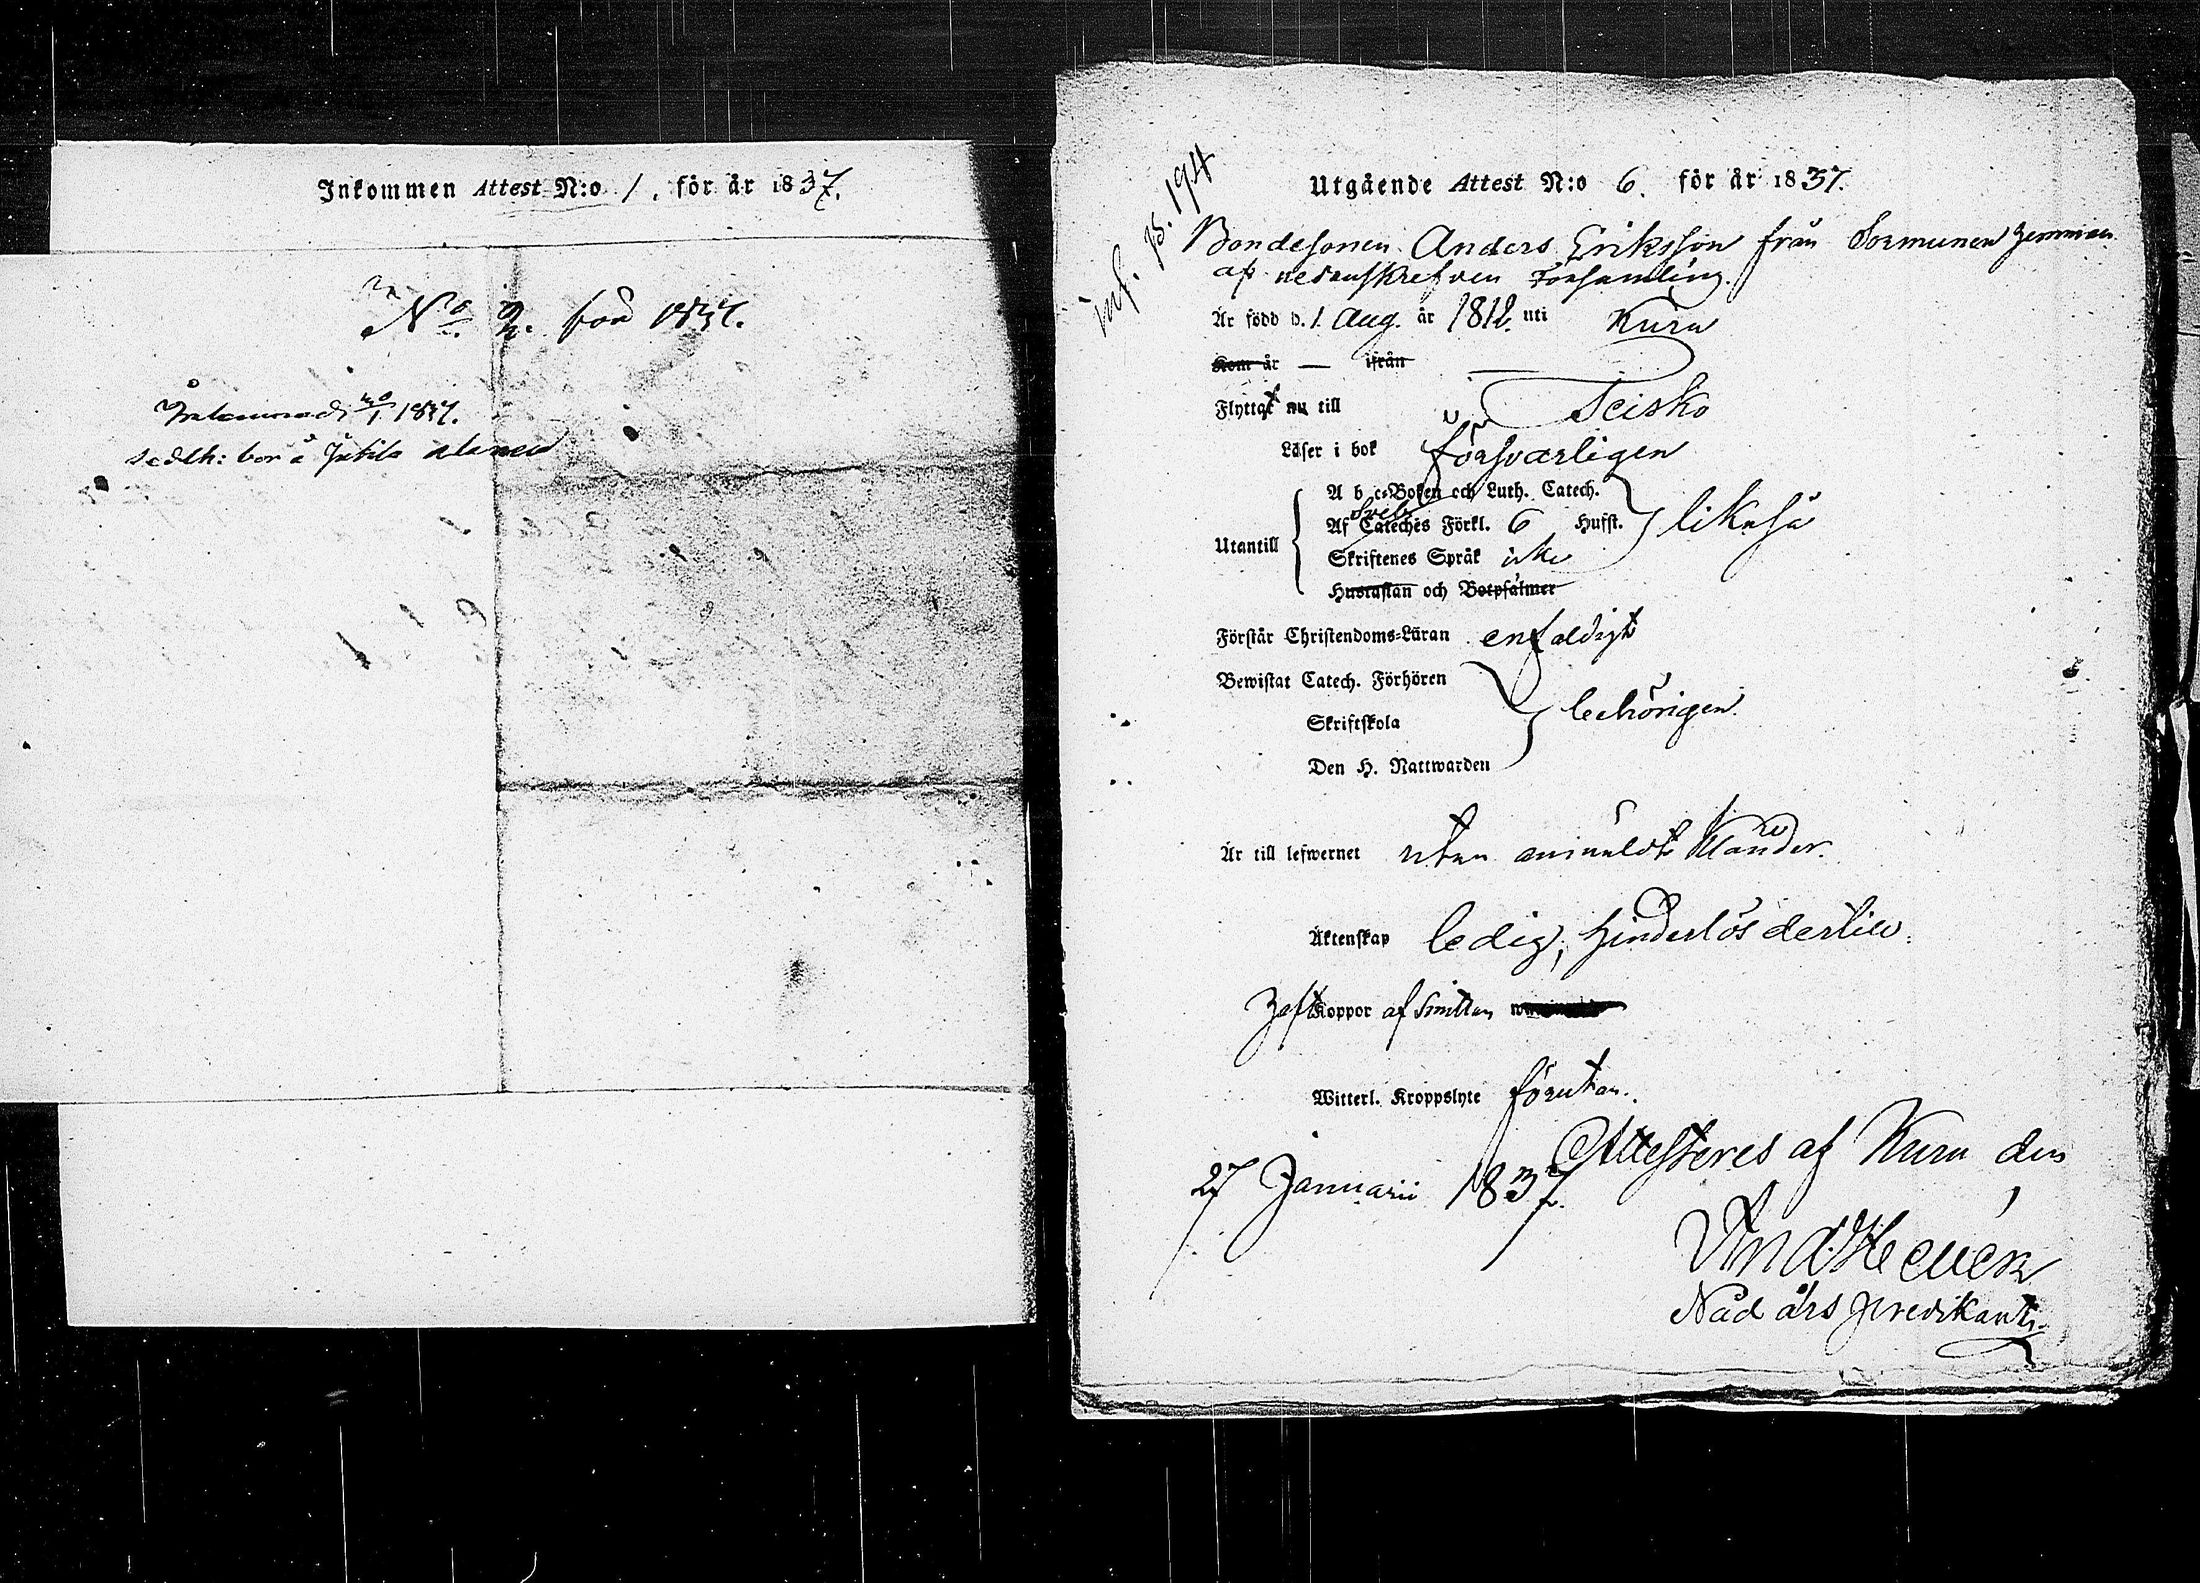 Inkommen Attest N:o 1. för år 1837.
No 2. för 1837.
Inkommen 1837.
bor å
Utgående Attest N:o 6. för år 1837.
inf. p. 194
Bondesonen Anders Eriksson från Sormunen hemman
af nedanskrefven Församling
Är född d. 1. Aug. år 1812. uti Kuru
Kom år — ifrån —
Flyttat nu till Teisko
Läser i bok försvarligen
A b c-Boken och Luth. Catech.
Af Sveb. Cateches Förkl. 6 Hufst. likaså
Utantill
Skriftenes Språk icke
Hustaflan och Botpsalmer
Förstår Christendoms-Läran enfaldigt
Bewistat Catech. Förhören
Skriftskola behörigen.
Den H. Nattwarden
Är till lefwernet utan anmäldt klander.
Äktenskap ledig, hinderlös dertill.
Haft Koppor af Smittan
Witterl. Kroppslyte förutan.
Attesteres af Kuru den
27 Januarii 1837.
And.
Nådårs predikant.